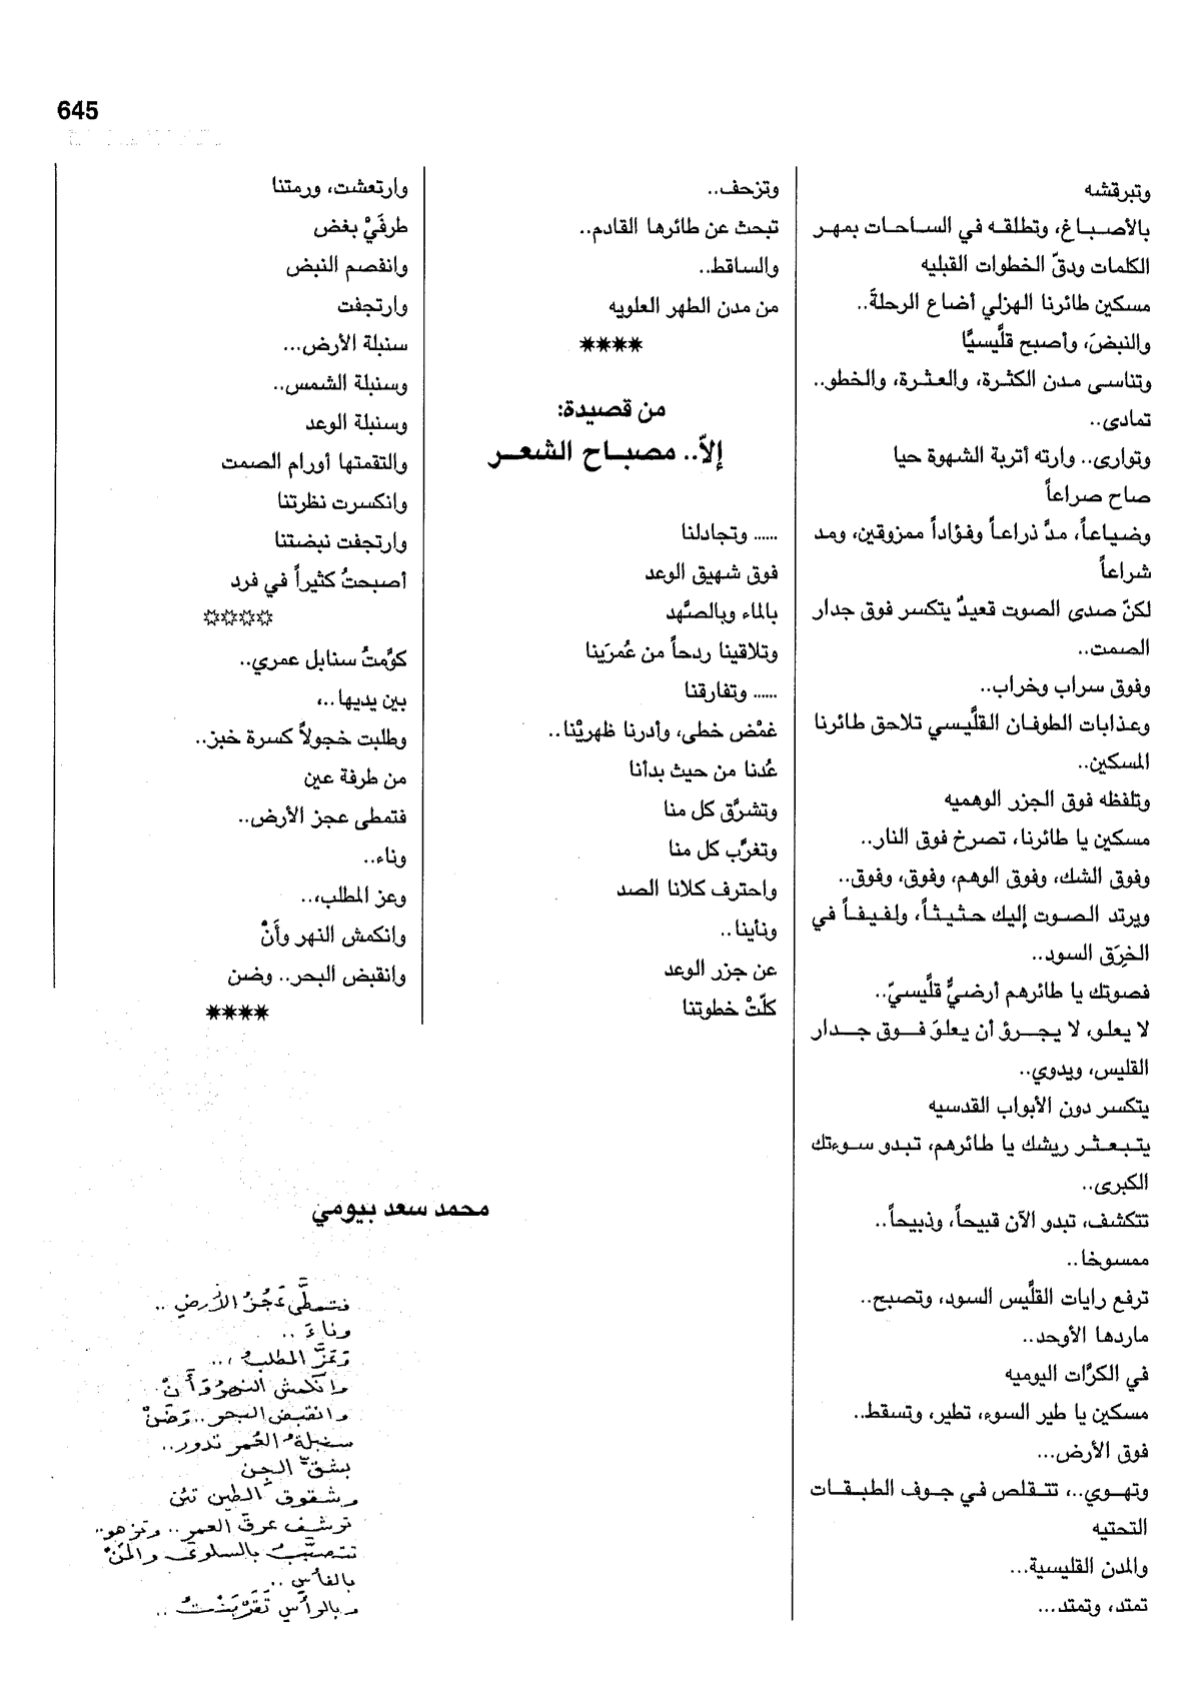 645
وتبرقشه
بالأصباغ، وتطلقه في الساحات بمهر
الكلمات ودقّ الخطوات القبليه
مسكين طائرنا الهزلي أضاع الرحلةَ..
والنبضَ، وأصبح قلَّيسيًّا
وتناسى مدن الكثرة، والعثرة، والخطو..
تمادى..
وتوارى.. وارته أتربة الشهوة حيا
صاح صراعاً
وضياعاً، مدَّ ذراعاً وفؤاداً ممزوقين، ومد
شراعاً
لكنّ صدى الصوت قعيدٌ يتكسر فوق جدار
الصمت..
وفوق سراب وخراب..
وعذابات الطوفان القلَّيسي تلاحق طائرنا
المسكين..
وتلفظه فوق الجزر الوهميه
مسكين يا طائرنا، تصرخ فوق النار..
وفوق الشك، وفوق الوهم، وفوق، وفوق..
ويرتد الصوت إليك حثيثاً، ولفيفاً في
الخِرَق السود..
فصوتك يا طائرهم أرضيٌّ قلَّيسيّ..
لا يعلو، لا يجرؤ أن يعلوَ فوق جدار
القليس، ويدوي..
يتكسر دون الأبواب القدسيه
يتبعثر ريشك يا طائرهم، تبدو سوءتك
الكبرى..
تتكشف، تبدو الآن قبيحاً، وذبيحاً..
ممسوخا..
ترفع رايات القلَّيس السود، وتصبح..
ماردها الأوحد..
في الكرَّات اليوميه
مسكين يا طير السوء، تطير، وتسقط..
فوق الأرض...
وتهوي..، تتقلص في جوف الطبقات
التحتيه
والمدن القليسية...
تمتد، وتمتد...
وتزحف..
تبحث عن طائرها القادم..
والساقط..
من مدن الطهر العلويه
****
من قصيدة:
إلاّ.. مصباح الشعر
...... وتجادلنا
فوق شهيق الوعد
بالماء وبالصَّهد
وتلاقينا ردحاً من عُمرَينا
...... وتفارقنا
غمْض خطى، وأدرنا ظهريْنا..
عُدنا من حيث بدأنا
وتشرَّق كل منا
وتغرَّب كل منا
واحترف كلانا الصد
ونأينا..
عن جزر الوعد
كلّتْ خطوتنا
وارتعشت، ورمتنا
طرفَيْ بغض
وانفصم النبض
وارتجفت
سنبلة الأرض...
وسنبلة الشمس..
وسنبلة الوعد
والتقمتها أورام الصمت
وانكسرت نظرتنا
وارتجفت نبضتنا
أصبحتُ كثيراً في فرد
****
كوَّمتُ سنابل عمري..
بين يديها..،
وطلبت خجولاً كسرة خبز..
من طرفة عين
فتمطى عجز الأرض..
وناء..
وعز المطلب،..
وانكمش النهر وأَنّ
وانقبض البحر.. وضن
****
محمد سعد بيومي
فتمطَّى عَجُزُ الأرضِ ..
وناءَ ..
وَعَزَّ المطلبُ ،..
وانكمش النهرُ وَأَنّ
وانقبض البحر .. وَضَنّ
سنبلةُ العُمرِ تدور..
بشقِّ الجن
وشقوق الطين تئن
ترشف عرق العمر .. وتزهو..
تتصبَّبُ بالسلوى والمنّ
بالفأس ..
وبالرأس ..